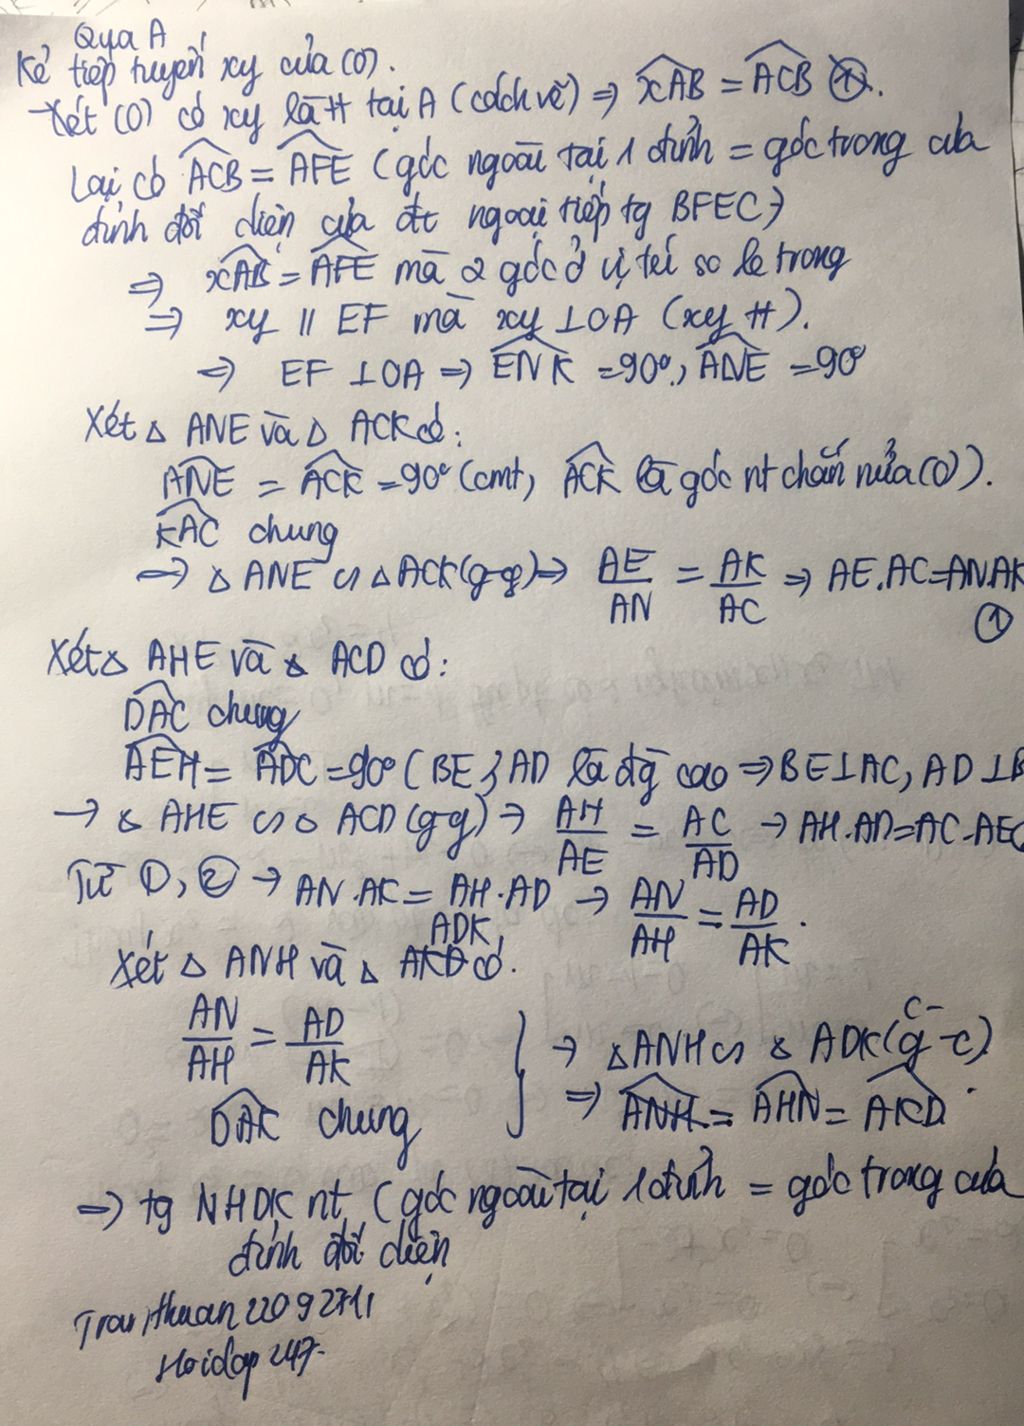 Qua A
Kẻ tiếp tuyến xy của (O).
→Xét (O) có xy là tt tại A (cách vẽ) ⇒ xAB = ACB
Lại có ACB = AFE (góc ngoài tại 1 đỉnh = góc trong của
đỉnh đối diện của đt ngoại tiếp tg BFEC)
⇒ xAB = AFE mà 2 góc ở vị trí so le trong
⇒ xy // EF mà xy ⊥ OA (xy tt).
⇒ EF ⊥ OA ⇒ ENK = 90°, ANE = 90°
Xét △ ANE và △ ACK có:
ANE = ACK = 90° (cmt, ACK là góc nt chắn nửa (O)).
KAC chung
⇒ △ ANE ∽ △ ACK (g-g) ⇒ AE/AN = AK/AC ⇒ AE.AC=AN.AK
①
Xét △ AHE và △ ACD có:
DAC chung
AEH = ADC = 90° (BE, AD là đg cao ⇒ BE⊥AC, AD⊥B
→ △ AHE ∽ △ ACD (g-g) → AH/AE = AC/AD → AH.AD=AC.AE
Từ ①, ② → AN.AK = AH.AD → AN/AH = AD/AK.
ADK
Xét △ ANH và △ AKD có.
AN/AH = AD/AK
DAK chung
→ △ANH ∽ △ ADK (c-g-c)
⇒ ANH = AHN = AKD.
⇒ tg NHDK nt (góc ngoài tại 1 đỉnh = góc trong của
đỉnh đối diện
Hoidap 247.